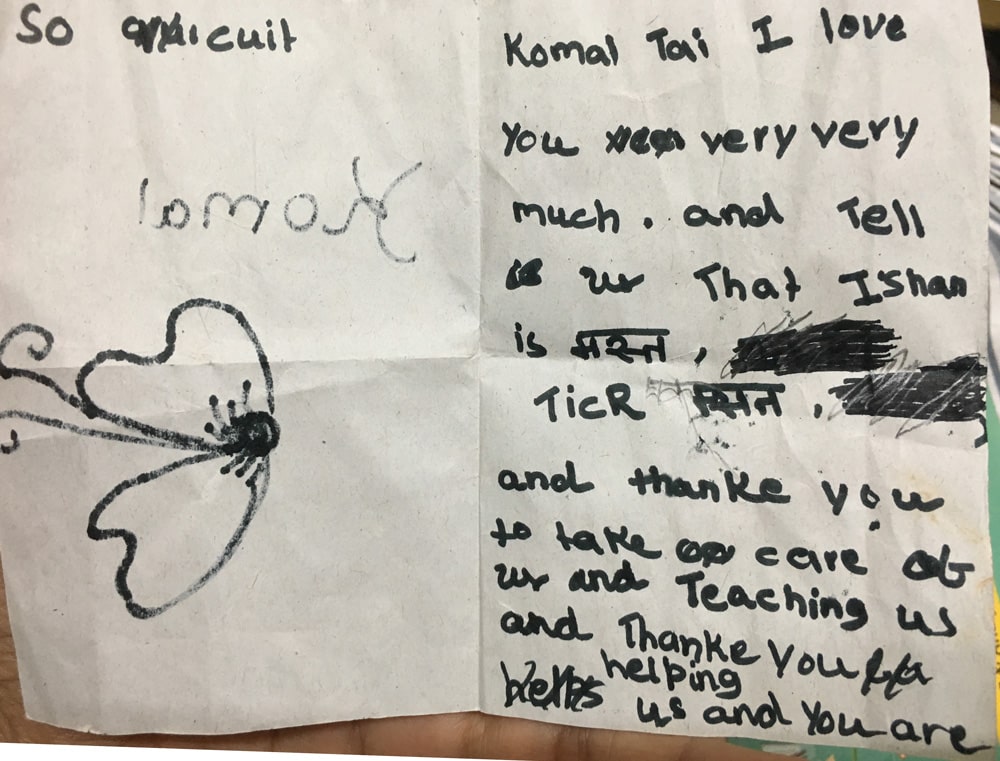 So cuit
Komal
Komal Tai I love
You very very
much. and Tell
ur That Ishan
is मस्त ,
TicR ,
and thanke you
to take care of
ur and Teaching us
and Thanke You
helping
us and You are